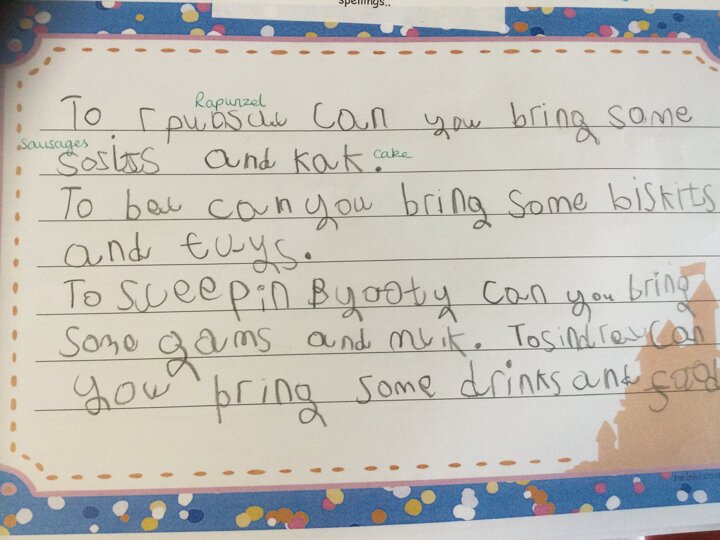 spellings..
Rapunzel
To rpunsul can you bring some
sausages
sosiss and kak. cake
To bel can you bring some biskits
and tuys.
To sleepin Byooty can you bring
some gams and mlik. To sindrel can
you bring some drinks and food
twinkl.co